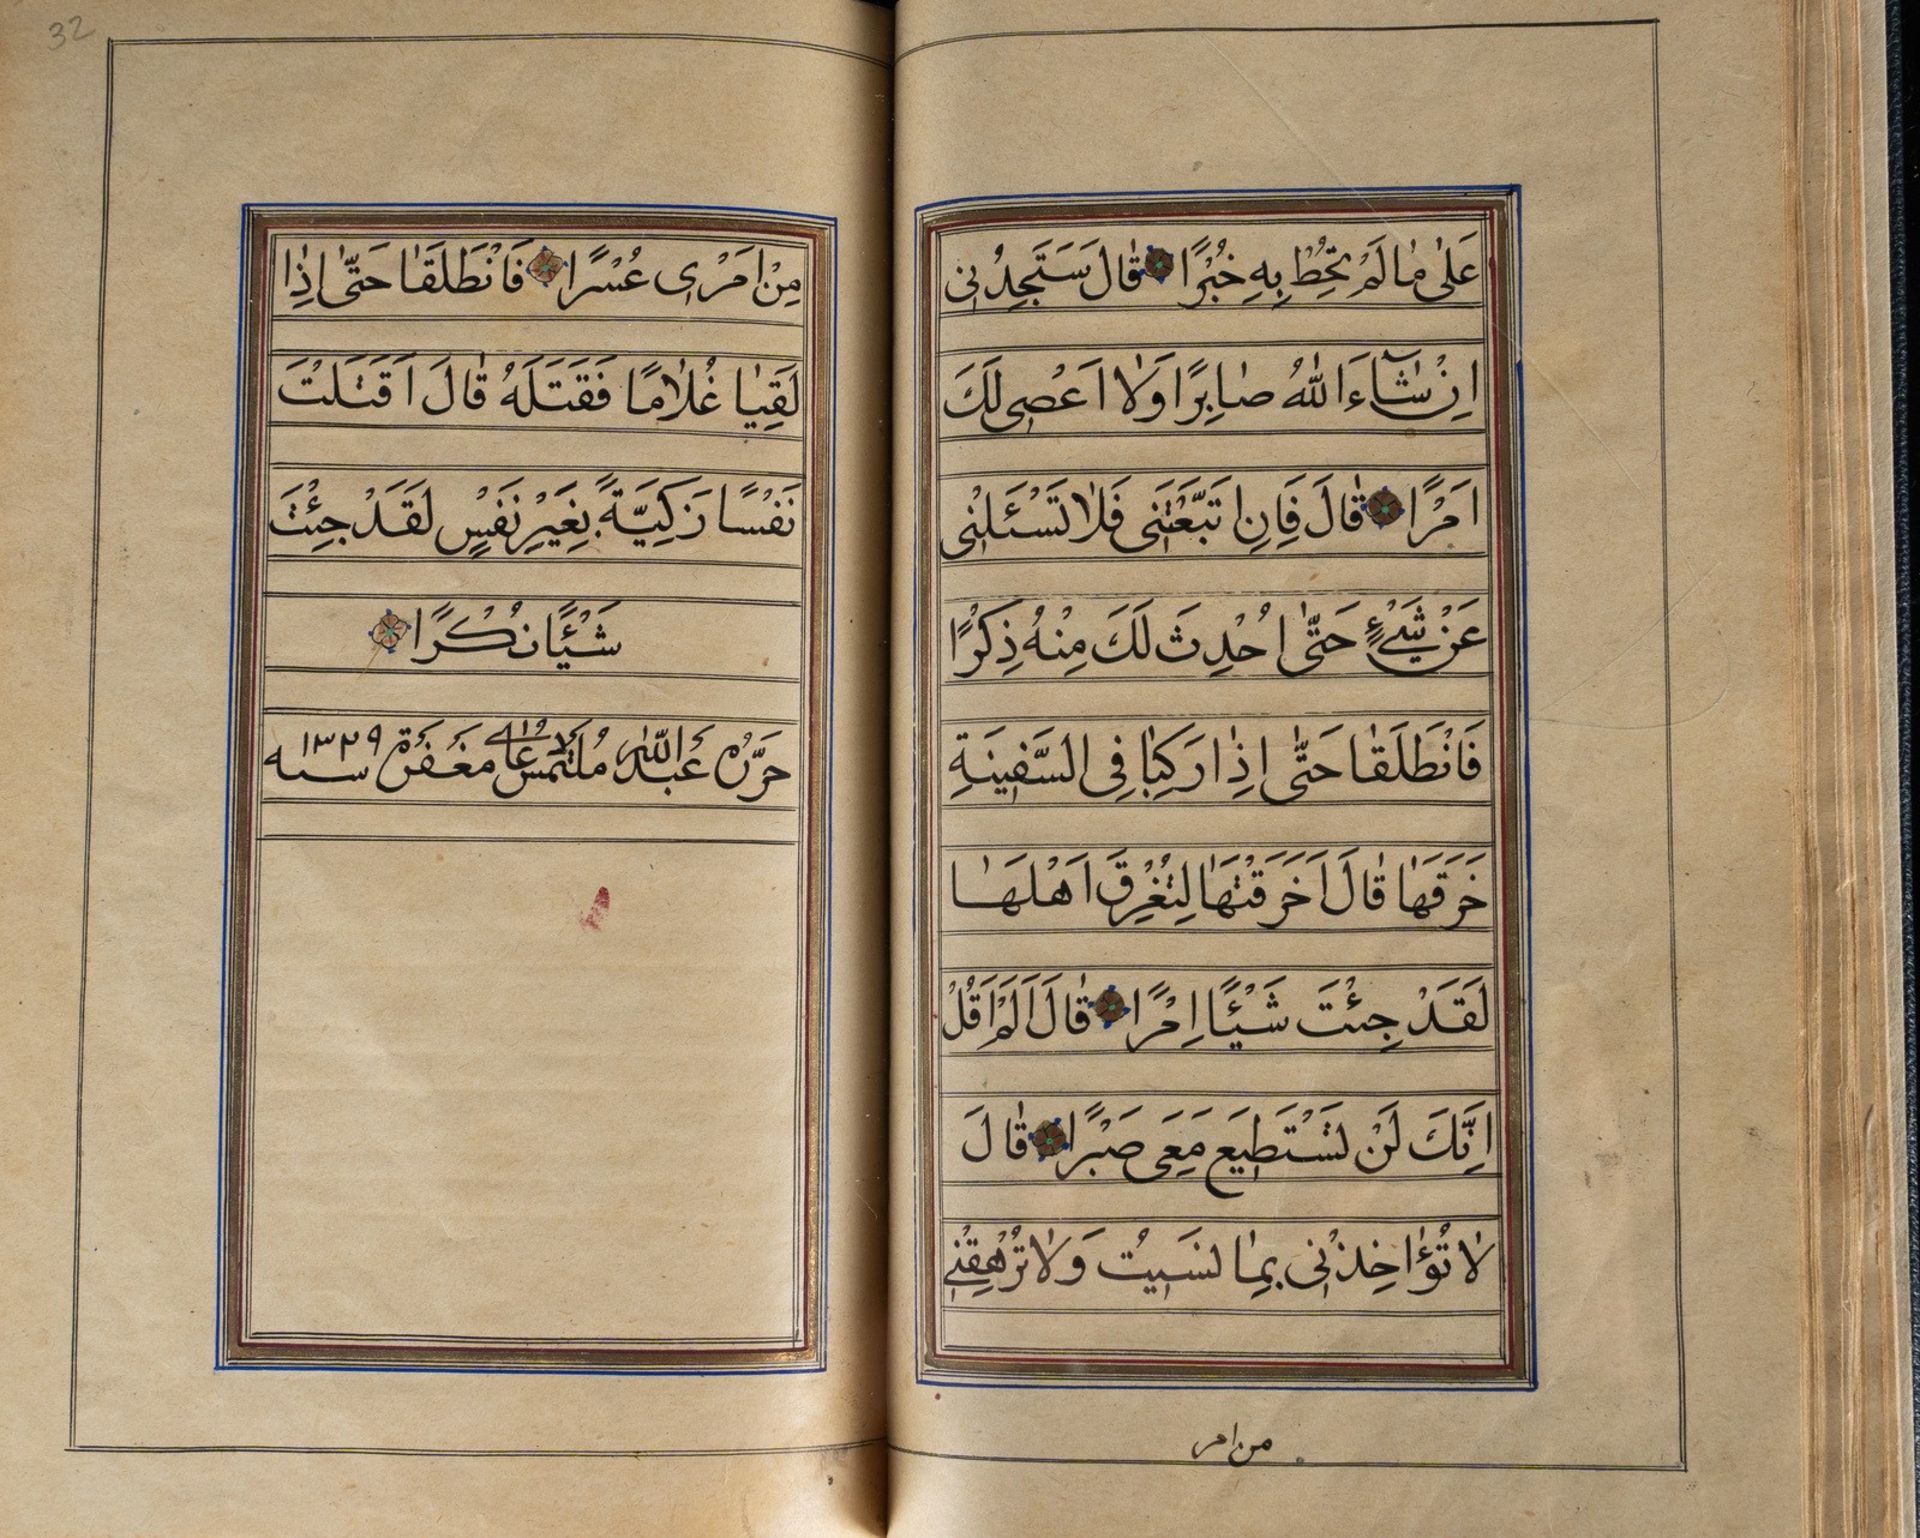 عَلٰى مٰا لَمْ تُحِطْ بِهِ خُبْرًا قٰالَ سَتَجِدُنِى
اِنْ شٰآءَ اللّٰهُ صٰابِرًا وَلٰا اَعْصِى لَكَ
اَمْرًا قٰالَ فَاِنِ اتَّبَعْتَنِى فَلٰا تَسْئَلْنِى
عَنْ شَيْءٍ حَتّٰى اُحْدِثَ لَكَ مِنْهُ ذِكْرًا
فَانْطَلَقٰا حَتّٰى اِذٰا رَكِبٰا فِى السَّفِينَةِ
خَرَقَهٰا قٰالَ اَخَرَقْتَهٰا لِتُغْرِقَ اَهْلَهٰا
لَقَدْ جِئْتَ شَيْئًا اِمْرًا قٰالَ اَلَمْ اَقُلْ
اِنَّكَ لَنْ تَسْتَطِيعَ مَعِىَ صَبْرًا قٰالَ
لٰا تُؤٰاخِذْنِى بِمٰا نَسِيتُ وَلٰا تُرْهِقْنِى
من امر
32
مِنْ اَمْرِى عُسْرًا فَانْطَلَقٰا حَتّٰى اِذٰا
لَقِيٰا غُلٰامًا فَقَتَلَهُ قٰالَ اَقَتَلْتَ
نَفْسًا زَكِيَّةً بِغَيْرِ نَفْسٍ لَقَدْ جِئْتَ
شَيْئًا نُكْرًا
حَرَّرَهُ عَبْدُ اللّٰه مُلْتَمِس دُعٰاى مَغْفَرَة سنه ١٣٢٩